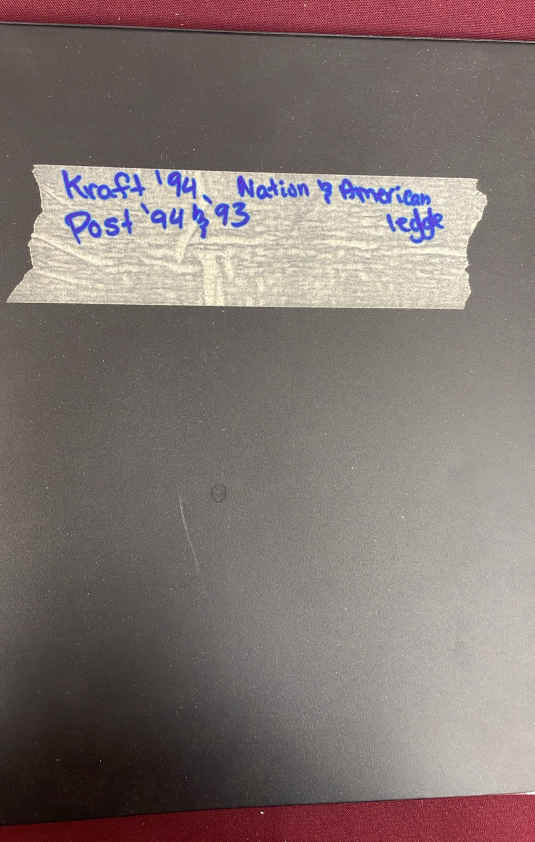 Kraft '94, Nation & American
Post '94 & '93 legde